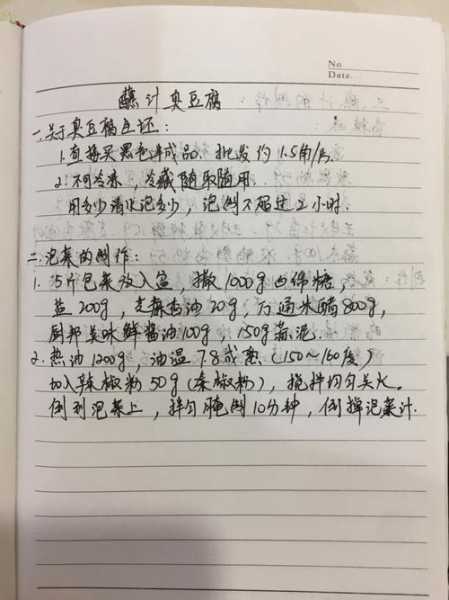 No
Date.
蘸汁臭豆腐
一、关于臭豆腐生坯:
1. 直接买黑色半成品. 批发约1.5角/片.
2. 不可冷冻, 冷藏随取随用.
用多少清水泡多少, 泡制不超过2小时.
二、泡菜的制作:
1. 15斤包菜放入盆, 撒1000g白绵糖,
盐200g, 芝麻香油20g, 白米醋800g,
厨邦美味鲜酱油100g, 150g蒜泥.
2. 热油1200g, 油温7.8成熟 (150~160度)
加入辣椒粉50g (秦椒粉), 搅拌均匀关火.
倒到泡菜上, 拌匀腌制10分钟, 倒掉泡菜汁.